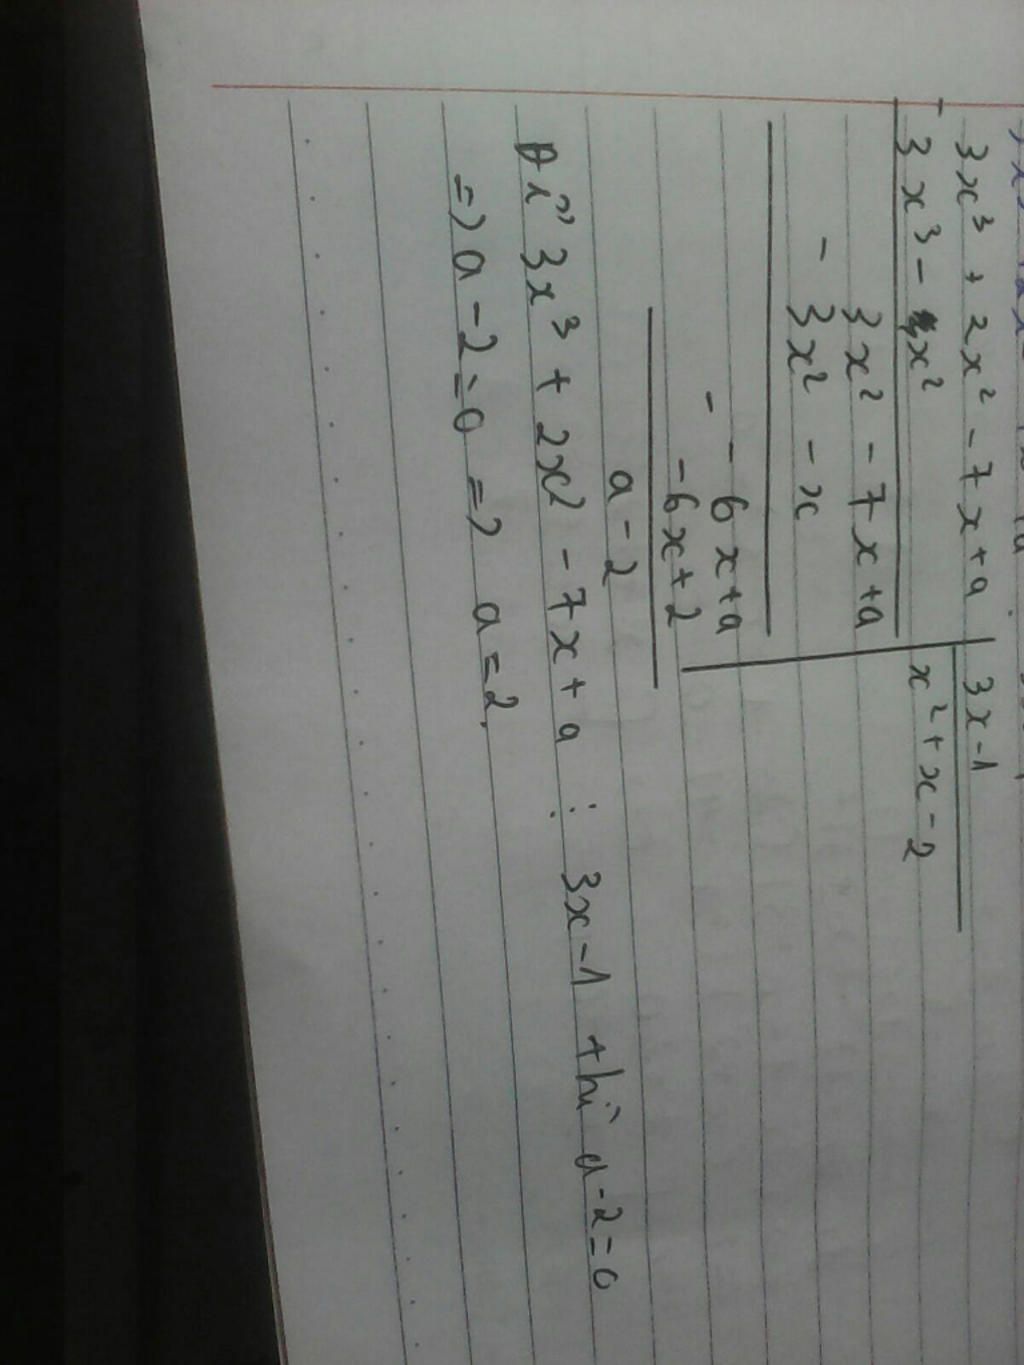 3x³ + 2x² - 7x + a | 3x - 1
- 3x³ - x² | x² + x - 2
3x² - 7x + a
- 3x² - x
- 6x + a
- -6x + 2
a - 2
Để 3x³ + 2x² - 7x + a ⋮ 3x - 1 thì a - 2 = 0
=> a - 2 = 0 => a = 2.